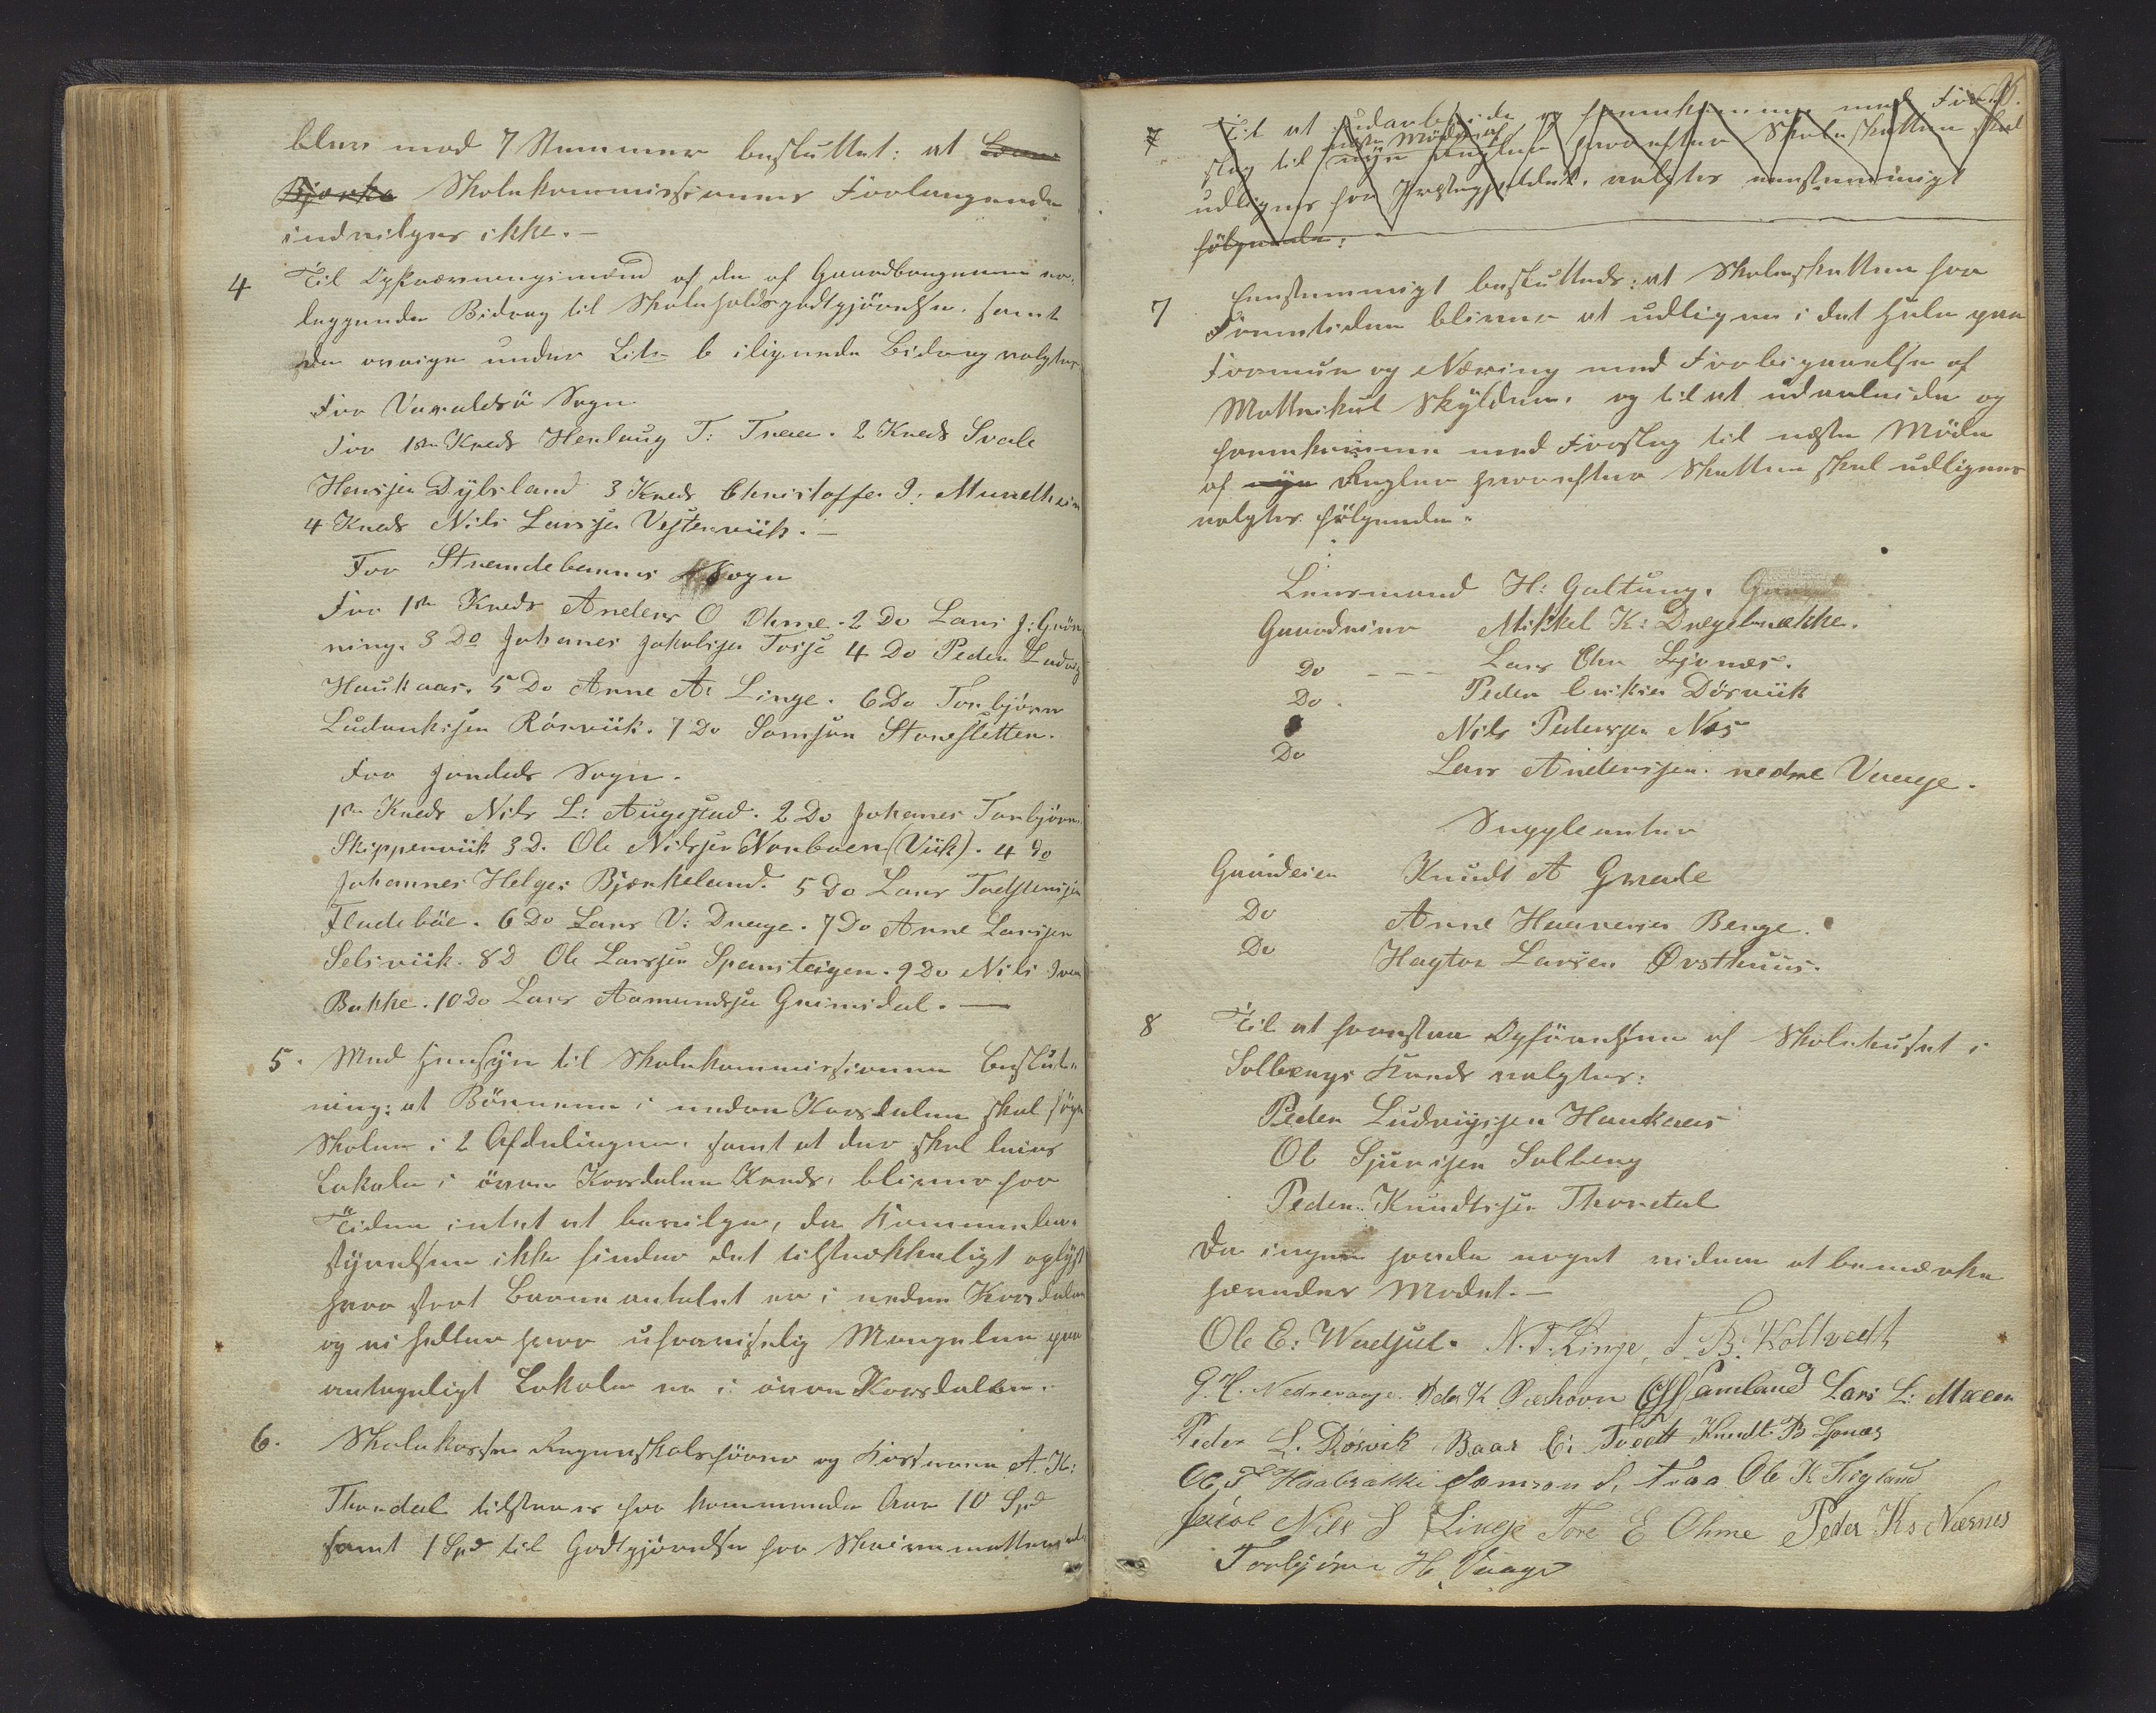 blev med 7 Stemmer besluttet: at
Bjerke Skolekommissionens Forlangende
indvilges ikke. —
4 Til Opkrævningsmænd af de af Gaardbrugerne er-
leggende Bidrag til Skoleholdsgodtgjörelse, samt
de övrige under Litr b ilignede Bidrag valgtes
For Varaldsö Sogn
For 1ste Kreds Herlaug T: Traae. 2 Kreds Svale
Hensjen Dybsland 3 Kreds Christoffer I: Mundheim
4 Kreds Nils Larssen Vestervüik. —
For Strandebarms Sogn
For 1ste Kreds Anders O Ohme. 2 Do Lars J: Grön-
ning. 3 Do Johanes Jakobsen Tosse 4 Do Peder Ludvig
Haukaas. 5 Do Arne A: Linge. 6 Do Torbjörn
Ludvuksen Rörviik. 7 Do Samson Storesletten.
For Jondals Sogn.
1ste Kreds Nils L: Augestad. 2 Do Johanes Torbjörns.
Skippervik 3 D. Ole Nilssen Norboen (Viik). 4 do
Johannes Helges Bjerkeland. 5 Do Lars Todstensen
Fladeböe. 6 Do Lars V: Drage. 7 Do Arne Larssen
Selsviik. 8 D Ole Larssen Spansteigen. 9 Do Nils Iver
Bakke. 10 Do Lars Aamundsen Grimsdal. —
5. Med Hensyn til Skolekommissionens Beslut-
ning: at Börnene i nedre Korsdalen skal söge
Skolen i 2 Afdelinger, samt at der skal leies
Lokale i övre Korsdalen Kreds, bliver for
Tiden intet at bevilge, da Kommunebe-
styrelsen ikke finder det tilstrækkeligt oplyst
hvor stort Barneantallet er i nedre Korsdalen
og ei heller hvor uforanselig Mangelen paa
antageligt Lokale er i övre Korsdalen.
6. Skolekassens Regnskabsförer og Kasserer A. K:
Thondal tilstaaes for kommende Aar 10 Spd
samt 1 Spd til Godtgjörelse for Skrivematterialer
7 Til at udarbeide og fremkomme med For-
slag til næste Möde af
nye Regler hvorefter Skoleskatten skal
udlignes for Præstegjeldet, valgtes eenstemmigt
følgende:
7 Eenstemmigt besluttedes: at Skoleskatten for
Fremtiden bliver at udligne i det Hele paa
Formue og Næring med Forbigaaelse af
Mattrikul Skylden, og til at udarbeide og
fremkomme med Forslag til næste Möde
af nye Regler hvorefter Skatten skal udlignes
valgtes fölgende:
Lensmand H: Galtung.
Gaardeier Mikkel K: Dregebrekke.
Do - - - Lars Chr Ljonæs.
Do. Peder Eriksen Dörviik
Nils Pederssen Nes
Do Lars Anderssen nedre Vaage.
Suppleanter
Gaardeier Knudt A Gravdle
Do Arne Haavessen Berge.
Do Hagtor Larsen Øvsthuus.
8 Til at forestaa Opförelsen af Skolehuset i
Solbergs Kreds valgtes:
Peder Ludvigssen Haukaas
Ole Sjurssen Solberg
Peder Knudtssen Thondal
Da ingen havde noget videre at bemærke
hævedes Mödet. —
Ole E: Wadjul. N. T. Linge, T. B. Koltvedt
G. H. Nedrevaage. Peder K Samland Lars L.
Peder L. Rösvik Baar Ei Tvedt Knudt B Ljonæs
Ole T Haabrække Samson S. Traa Ole K Tigland
Jacob Nils S Linge Tore E Ohme Peder Ks Næsnes
Torbjörn H. Vaage